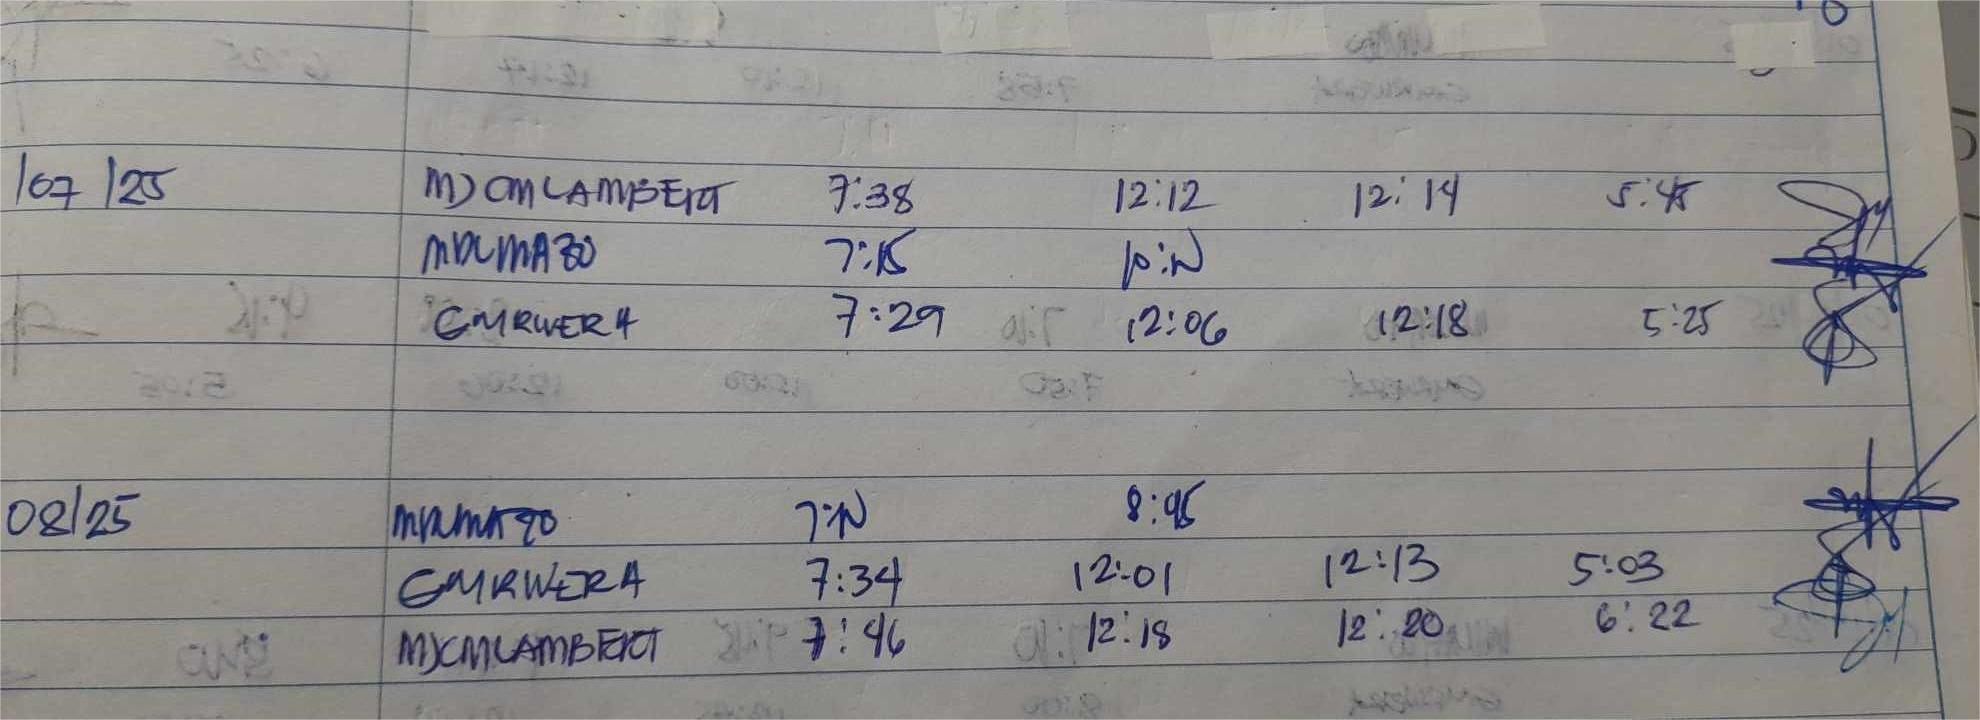 /07/25 MJCMLAMBERT 7:38 12:12 12:14 5:45
MRLMAZO 7:15
GMRIVERA 7:29 12:06 12:18 5:25
08/25 MRLMAZO 8:45
GMRIVERA 7:34 12:01 12:13 5:03
MJCMLAMBERT 7:46 12:18 12:20 6:22